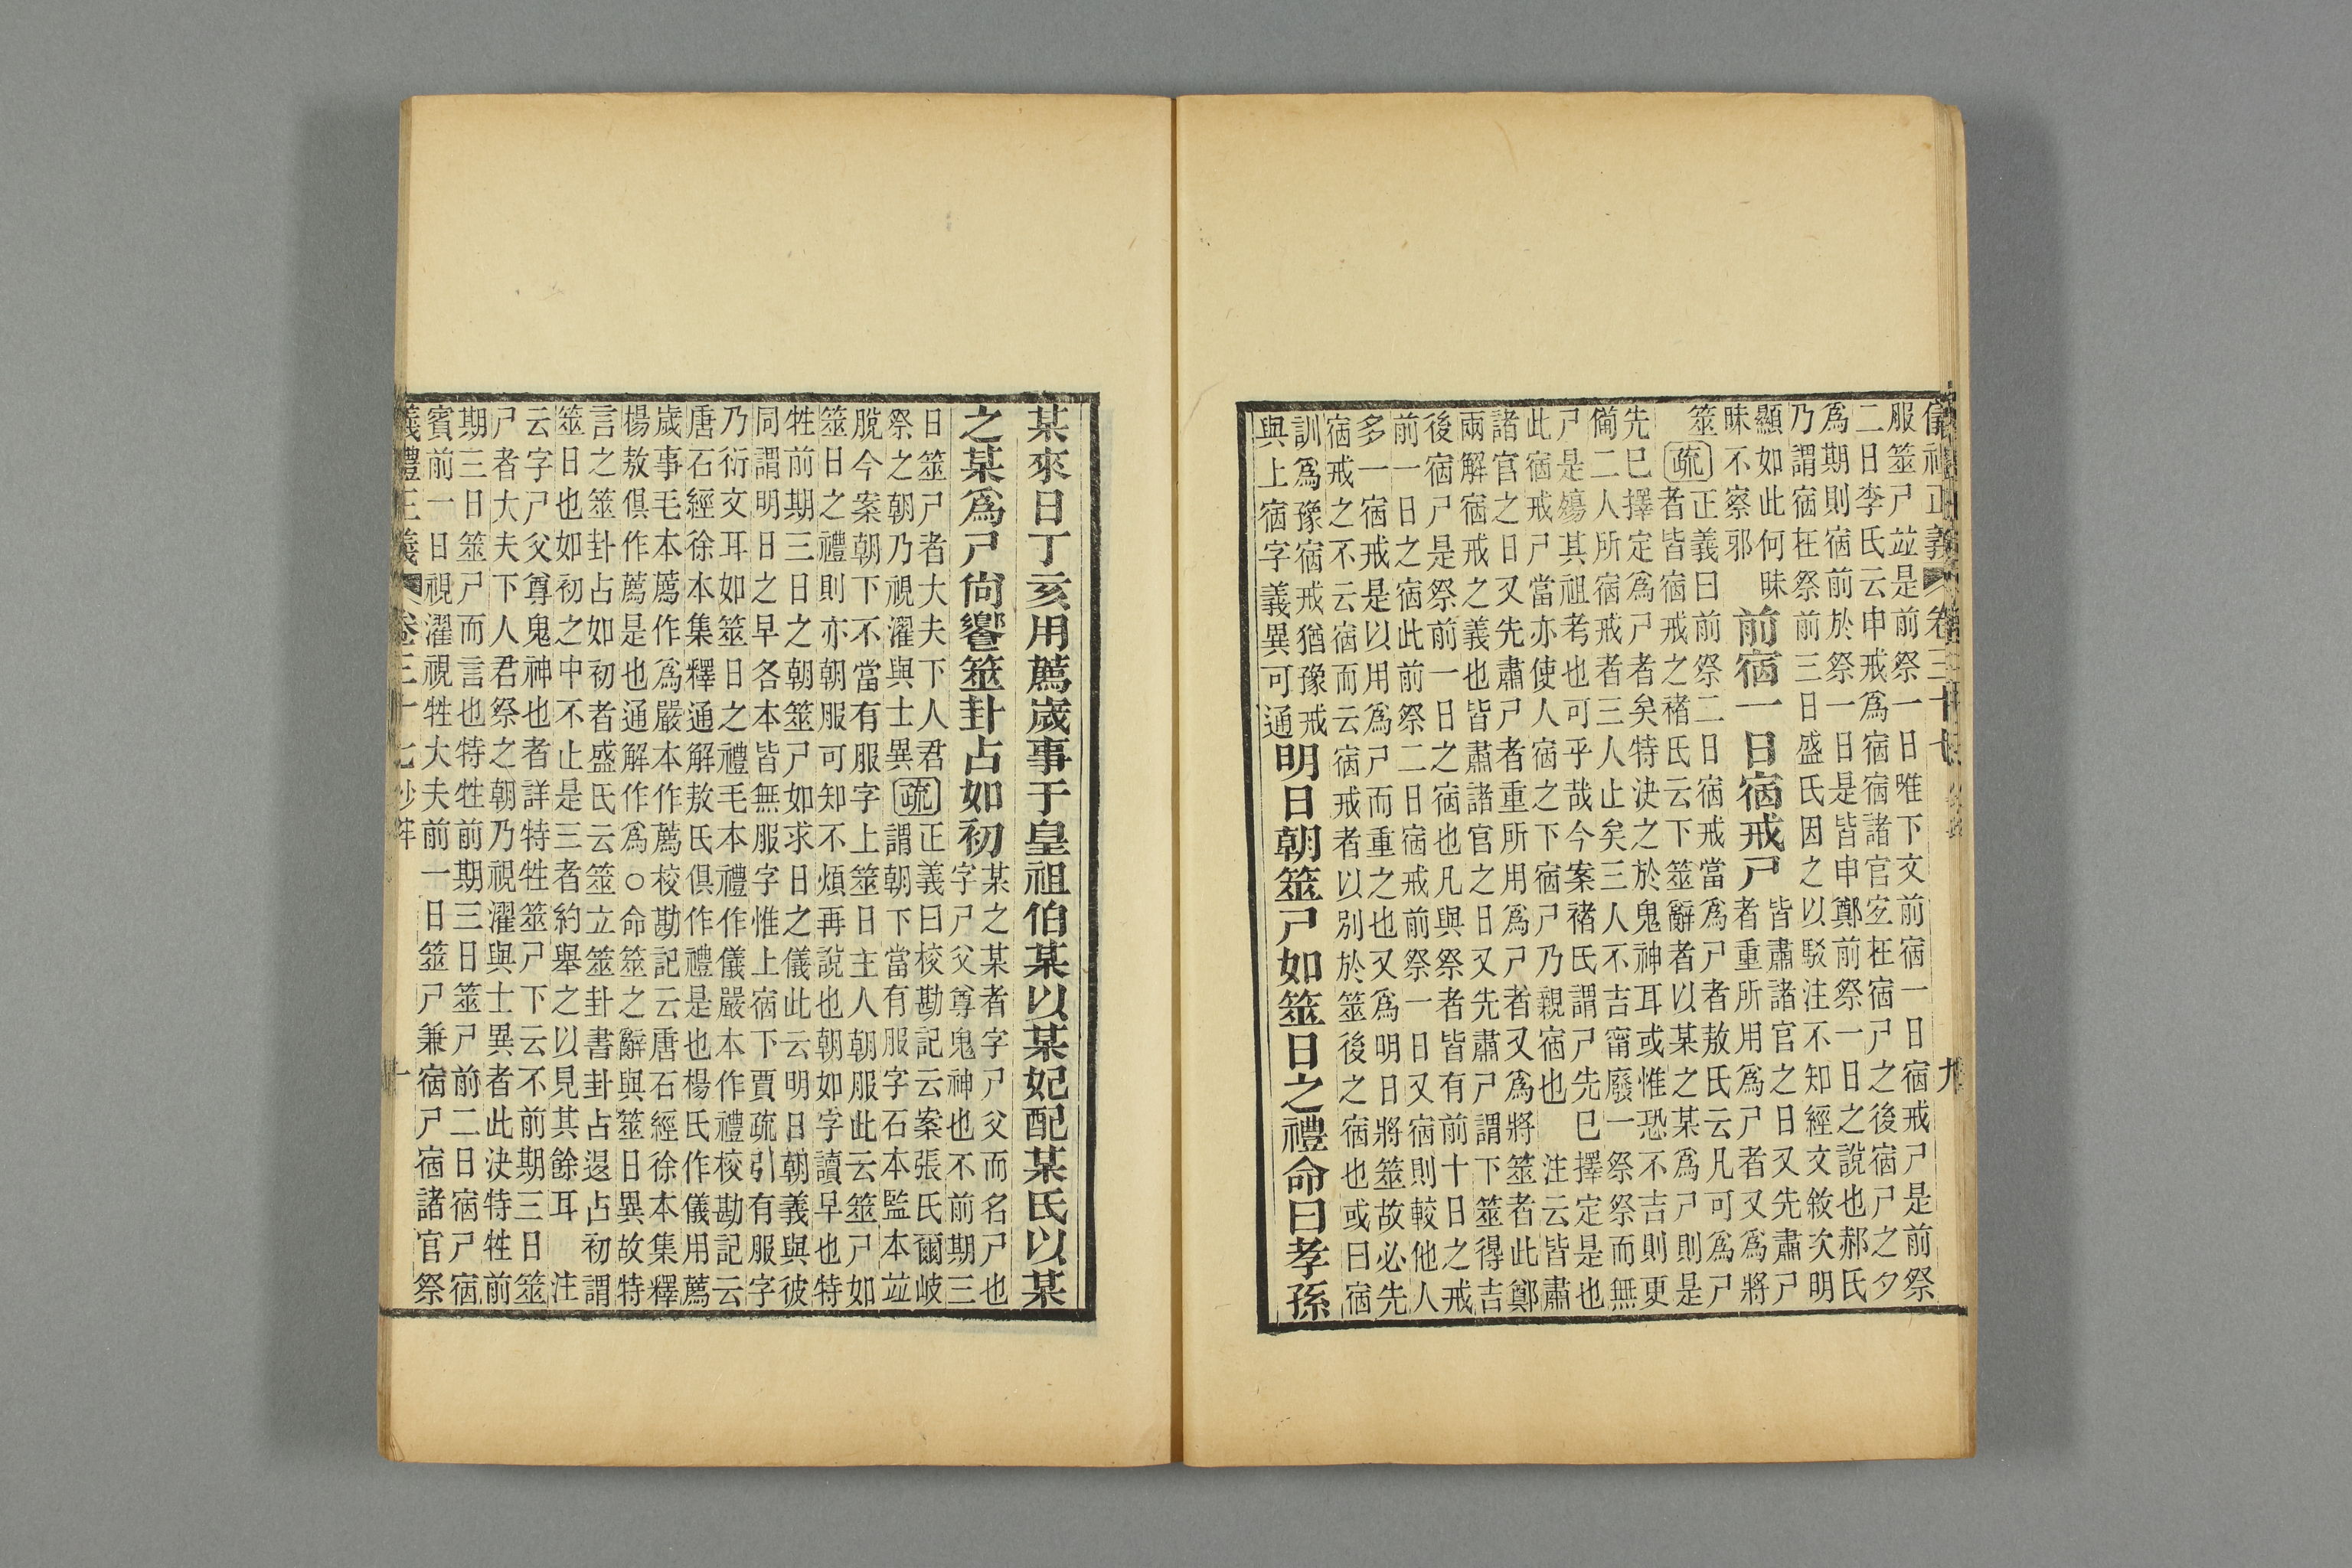 儀禮正義 卷三十七 九
服筮尸竝是前祭一日唯下文前宿一日宿戒尸是前祭
二日李氏云申戒爲宿宿諸官宐在宿尸之後宿尸之夕
爲期則宿前於祭一日是皆申鄭前祭一日之說也郝氏
乃謂宿在祭前三日盛氏因之以駁注不知經文敘次明
顯如此何昧
昧不察邪
前宿一日宿戒尸
皆肅諸官之日又先肅尸
者重所用爲尸者又爲將
筮
疏
正義曰前祭二日宿戒當爲尸者敖氏云凡可爲尸
者皆宿戒之褚氏云下筮辭者以某之某爲尸則是
先已擇定爲尸者矣特決之於鬼神耳或惟恐不吉則更
備二人所宿戒者三人止矣三人不吉甯廢一祭祭而無
尸是殤其祖考也可乎哉今案褚氏謂尸先已擇定是也
此宿戒尸當亦使人宿之下宿尸乃親宿也 注云皆肅
諸官之日又先肅尸者重所用爲尸者又爲將筮者此鄭
兩解宿戒之義也皆肅諸官之日又先肅尸謂下筮得吉
後宿尸是祭前一日之宿也凡與祭者皆有前十日之戒
前一日之宿此前祭二日宿戒前祭一日又宿則較他人
多一宿戒是以用爲尸而重之也又爲明日將筮故必先
宿戒之不云宿而云宿戒者以別於筮後之宿也或曰宿
訓爲豫宿戒猶豫戒
與上宿字義異可通
明日朝筮尸如筮日之禮命曰孝孫
某來日丁亥用薦歲事于皇祖伯某以某妃配某氏以某
之某爲尸尙饗筮卦占如初
某之某者字尸父而名尸也
字尸父尊鬼神也不前期三
日筮尸者大夫下人君
祭之朝乃視濯與士異
疏
正義曰校勘記云案張氏爾岐
謂朝下當有服字石本監本竝
脫今案朝下不當有服字上筮日主人朝服此云筮尸如
筮日之禮則亦朝服可知不煩再說也朝如字讀早也特
牲前期三日之朝筮尸如求日之儀此云明日朝義與彼
同謂明日之早各本皆無服字惟上宿下賈疏引有服字
乃衍文耳如筮日之禮毛本禮作儀嚴本作禮校勘記云
唐石經徐本集釋通解敖氏俱作禮是也楊氏作儀用薦
歲事毛本薦作爲嚴本作薦校勘記云唐石經徐本集釋
楊敖俱作薦是也通解作爲○命筮之辭與筮日異故特
言之筮卦占如初者盛氏云筮立筮卦書卦占退占初謂
筮日也如初之中不止是三者約舉之以見其餘耳 注
云字尸父尊鬼神也者詳特牲筮尸下云不前期三日筮
尸者大夫下人君祭之朝乃視濯與士異者此決特牲前
期三日筮尸而言也特牲前期三日筮尸前二日宿尸宿
賓前一日視濯視牲大夫前一日筮尸兼宿尸宿諸官祭
儀禮正義 卷三十七少牢 十